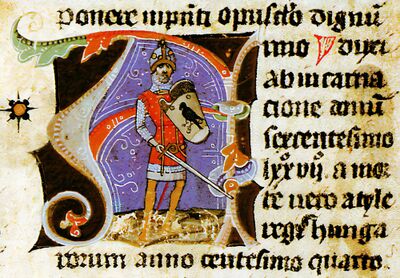 ponere inpn̄ti opusc̄lo dignū
ab incarna
cione
sexcentesimo
lxxͦ viiͦ. a mor
te vero atyle
regis hunga
rorum anno centesimo quarto.